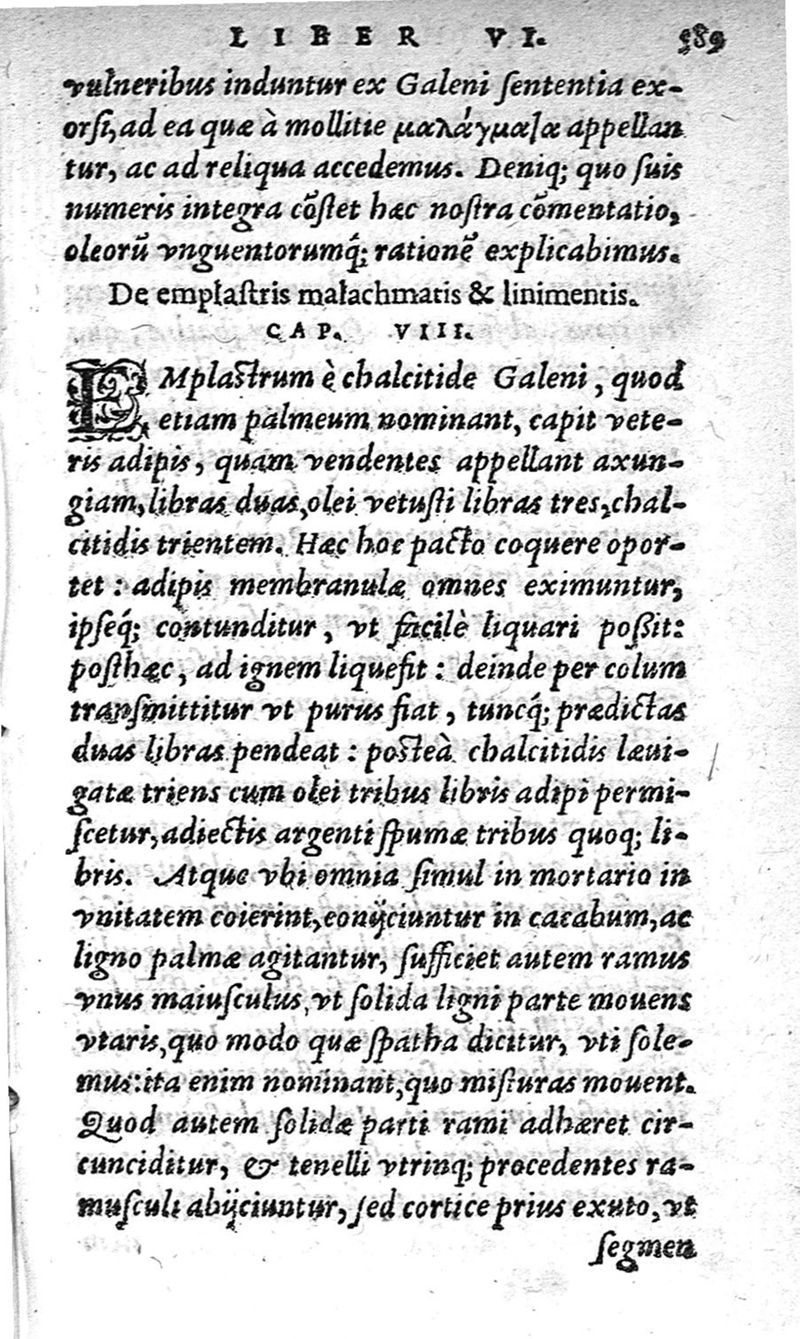 LIBER VI. 589
vulneribus induntur ex Galeni sententia ex-
orsi, ad ea quæ à mollitie μαλάγμαȷα appellan
tur, ac ad reliqua accedemus. Deniq; quo suis
numeris integra cõstet hæc nostra cõmentatio,
oleorũ vnguentorumq́; rationẽ explicabimus.
De emplastris malachmatis & linimentis.
CAP. VIII.
EMplastrum è chalcitide Galeni, quod
etiam palmeum nominant, capit vete-
ris adipis, quam vendentes appellant axun-
giam, libras duas, olei vetusti libras tres, chal-
citidis trientem. Hæc hoc pacto coquere opor-
tet: adipis membranulæ omnes eximuntur,
ipseq́; contunditur, vt facilè liquari possit:
posthæc, ad ignem liquefit: deinde per colum
transmittitur vt purus fiat, tuncq́; prædictas
duas libras pendeat: posteà chalcitidis læui-
gatæ triens cum olei tribus libris adipi permi-
scetur, adiectis argenti spumæ tribus quoq; li-
bris. Atque vbi omnia simul in mortario in
vnitatem coierint, conijciuntur in cacabum, ac
ligno palmæ agitantur, sufficiet autem ramus
vnus maiusculus, vt solida ligni parte mouens
vtaris, quo modo quæ spatha dicitur, vti sole-
mus: ita enim nominant, quo misturas mouent.
Quod autem solidæ parti rami adhæret cir-
cunciditur, & tenelli vtrinq; procedentes ra-
musculi abijciuntur, sed cortice prius exuto, vt
segmen